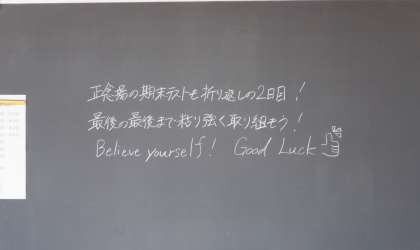 正念場の期末テストも折り返しの2日目！
最後の最後まで粘り強く取り組もう！
Believe yourself! Good Luck